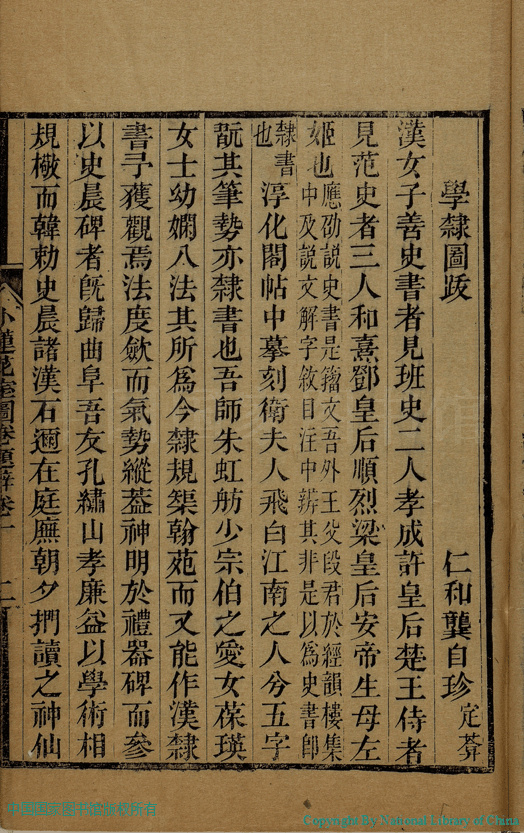 學隸圖跋
仁和龔自珍定菴
漢女子善史書者見班史二人孝成許皇后楚王侍者
見范史者三人和熹鄧皇后順烈梁皇后安帝生母左
姬也應劭說史書是籀文吾外王父段君於經韻樓集
中及說文解字敘目注中辨其非是以爲史書卽
隸書
也淳化閣帖中摹刻衛夫人飛白江南之人兮五字
翫其筆勢亦隸書也吾師朱虹舫少宗伯之愛女葆瑛
女士幼嫻八法其所爲今隸規榘翰苑而又能作漢隸
書予獲觀焉法度斂而氣勢縱葢神明於禮器碑而參
以史晨碑者旣歸曲阜吾友孔繡山孝廉益以學術相
規檄而韓勅史晨諸漢石邇在庭廡朝夕捫讀之神仙
小蓮花室圖卷題辭卷一
二
中国国家图书馆版权所有
Copyright By National Library of China